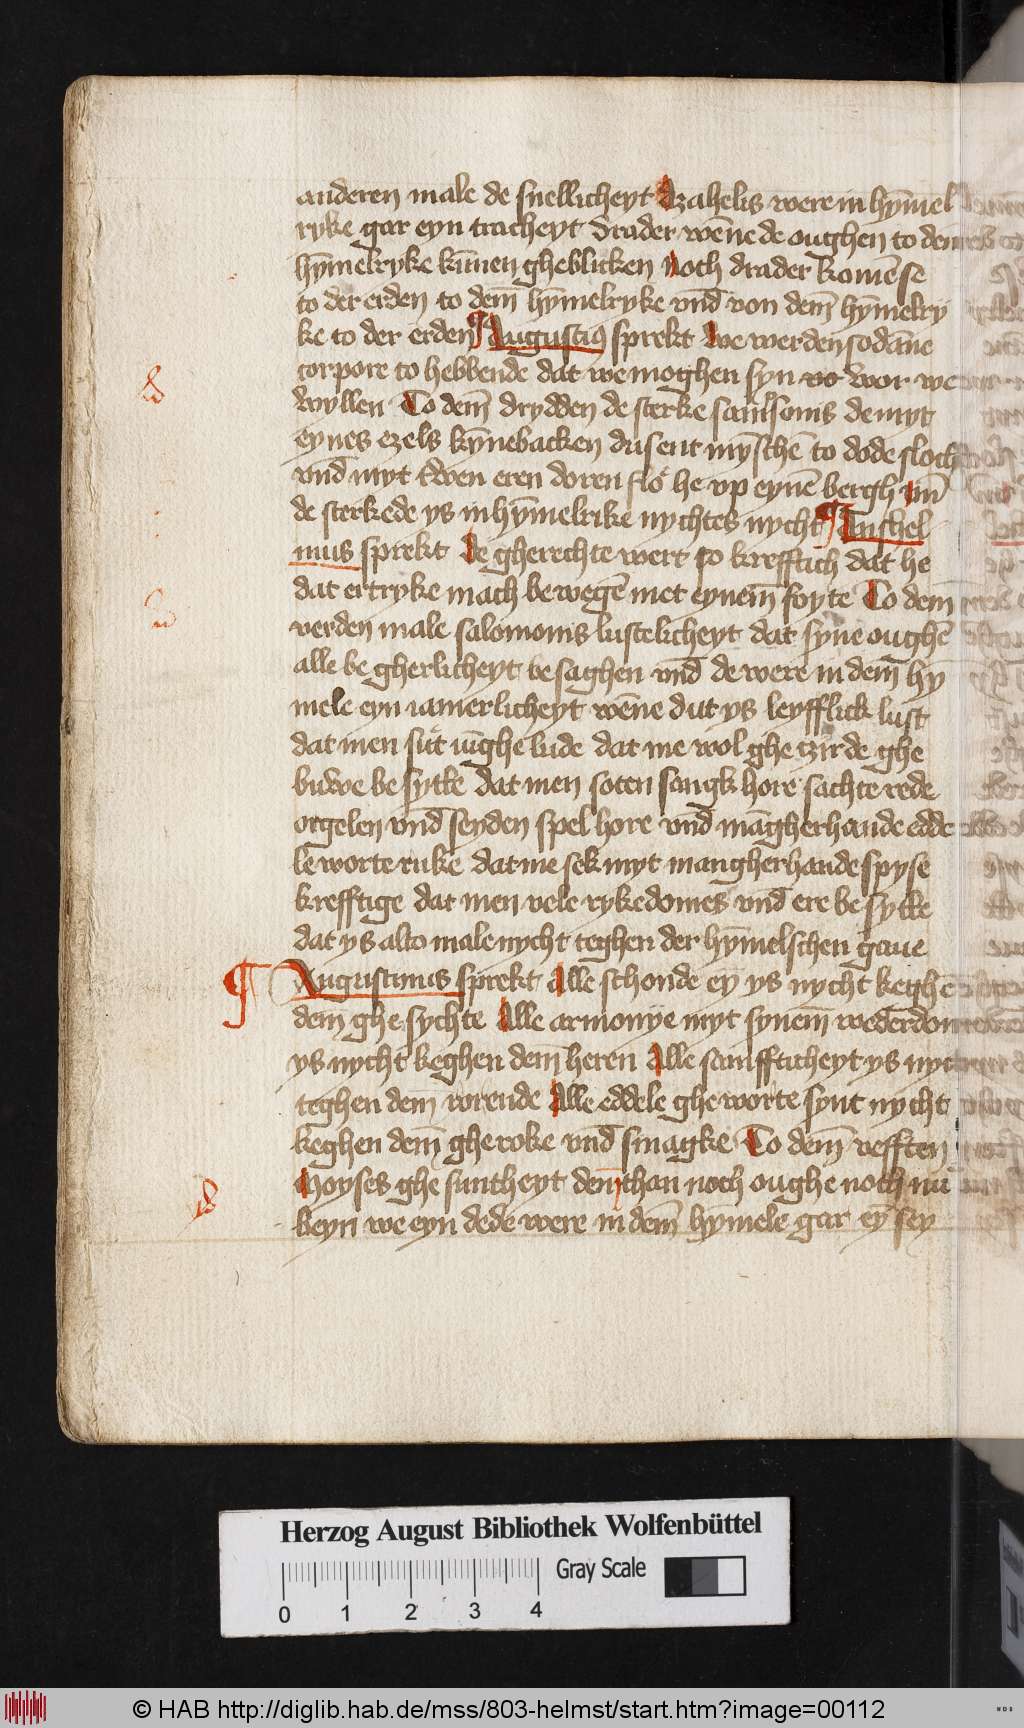 anderen male de snellicheyt Azahelis were in hȳmel
ryke gar eyn tracheyt drader wēne de oughen to den
hȳmelryke kūnen gheblicken noch drader komē se
to der erden to dem̄ hȳmelryke vnd̄ von dem̄ hȳmelry
ke to der erden ¶ Augustiꝰ sprekt We werden sodāne
corpore to hebbende dat we moghen syn wor we
wyllen To dem̄ drydden de sterke sampsonis de myt
eynes ezels kȳnebacken dusent mȳschē to dode sloch
vnd̄ myt twen eren doren he vp eynē bergh
de sterkede ys in hȳmelrike nychtes nycht ¶ Anshel
mus sprekt De gherechte wert so krefftich dat he
dat ertryke mach bewegē met eynem̄ foyte To dem̄
verden male salomonis lustelicheyt dat syne oughē
alle be gherlicheyt be saghen vnd̄ de were in dem̄ hȳ
mele eyn iamerlicheyt wēne dut ys leyfflick lust
dat men sut iūghe lude dat me wol ghe tzirde ghe
buwe be sytte dat men soten sangk hore sachte rede
orgelen vnd̄ seyden spel hore vnd̄ māgherhande edde
le worte ruke dat me sek myt mangherhande spyse
krefftige dat men vele rykedomes vnd̄ ere be sytte
dat ys alto male nycht teghen der hȳmelschen gaue
¶ Augustinus sprekt Alle schonde ey ys nycht keghē
dem̄ ghe sychte Alle armonye myt synem̄ wederdon
ys nycht keghen dem̄ heren Alle sanffticheyt ys nyc
teghen dem̄ rorende Alle eddele ghe worte synt nycht
keghen dem̄ ghe roke vnd̄ smagke To dem̄ vefften
Moyses ghe suntheyt dem̄ than noch oughe noch nū
keyn we eyn dede were in dem̄ hymele gar eȳ sey
Herzog August Bibliothek Wolfenbüttel
Gray Scale
0 1 2 3 4
© HAB http://diglib.hab.de/mss/803-helmst/start.htm?image=00112